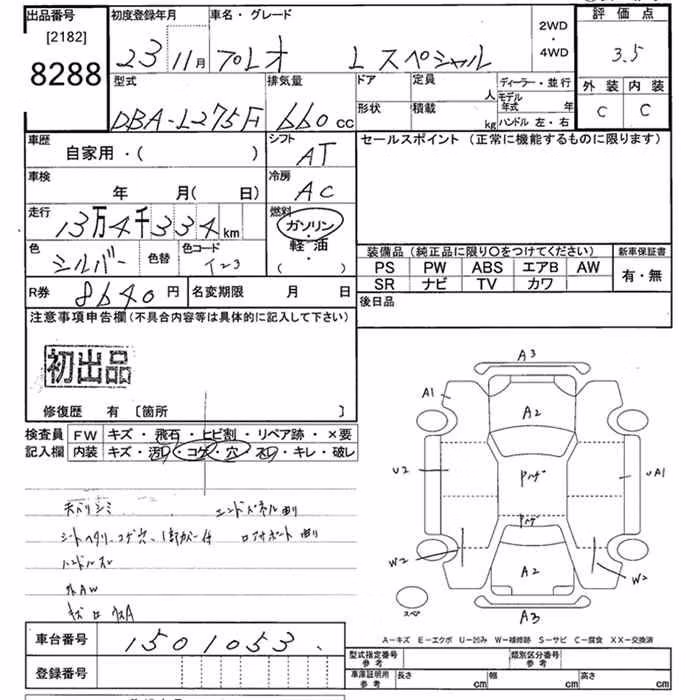 出品番号 [2182] 8288
初度登録年月 23 11月
車名・グレード プレオ L スペシャル
2WD・4WD
評価点 3.5
外装 内装
C C
型式 DBA-L275F
排気量 660cc
ドア 形状
定員 人
積載 kg
ディーラー・並行
モデル年式 年
ハンドル 左・右
車歴 自家用・( )
シフト AT
セールスポイント (正常に機能するものに限ります)
車検 年 月( 日)
冷房 AC
走行 13万4千334km
燃料 ガソリン・軽油 ( )
色 シルバー 色替 色コード
装備品 (純正品に限り○をつけてください)
PS PW ABS エアB AW
SR ナビ TV カワ
新車保証書 有・無
R券 8640円 名変期限 月 日
後日品
注意事項申告欄 (不具合内容等は具体的に記入して下さい)
初出品
修復歴 有 [箇所 ]
検査員記入欄
FW キズ・飛石・ヒビ割・リペア跡・×要
内装 キズ・汚レ・コゲ・穴・スレ・キレ・破レ
天バリシミ
エンドパネル曲リ
シートヘタリ、コゲ穴、
ロアサポート曲リ
ハンドルスレ
A3
A1
A2
U2
UA1
W2
W2
A2
A3
スペア
A-キズ E-エクボ U-凹み W-補修跡 S-サビ C-腐食 XX-交換済
車台番号 1501053
登録番号
型式指定番号 参考
類別区分番号 参考
車庫証明用 参考 長さ cm 幅 cm 高さ cm